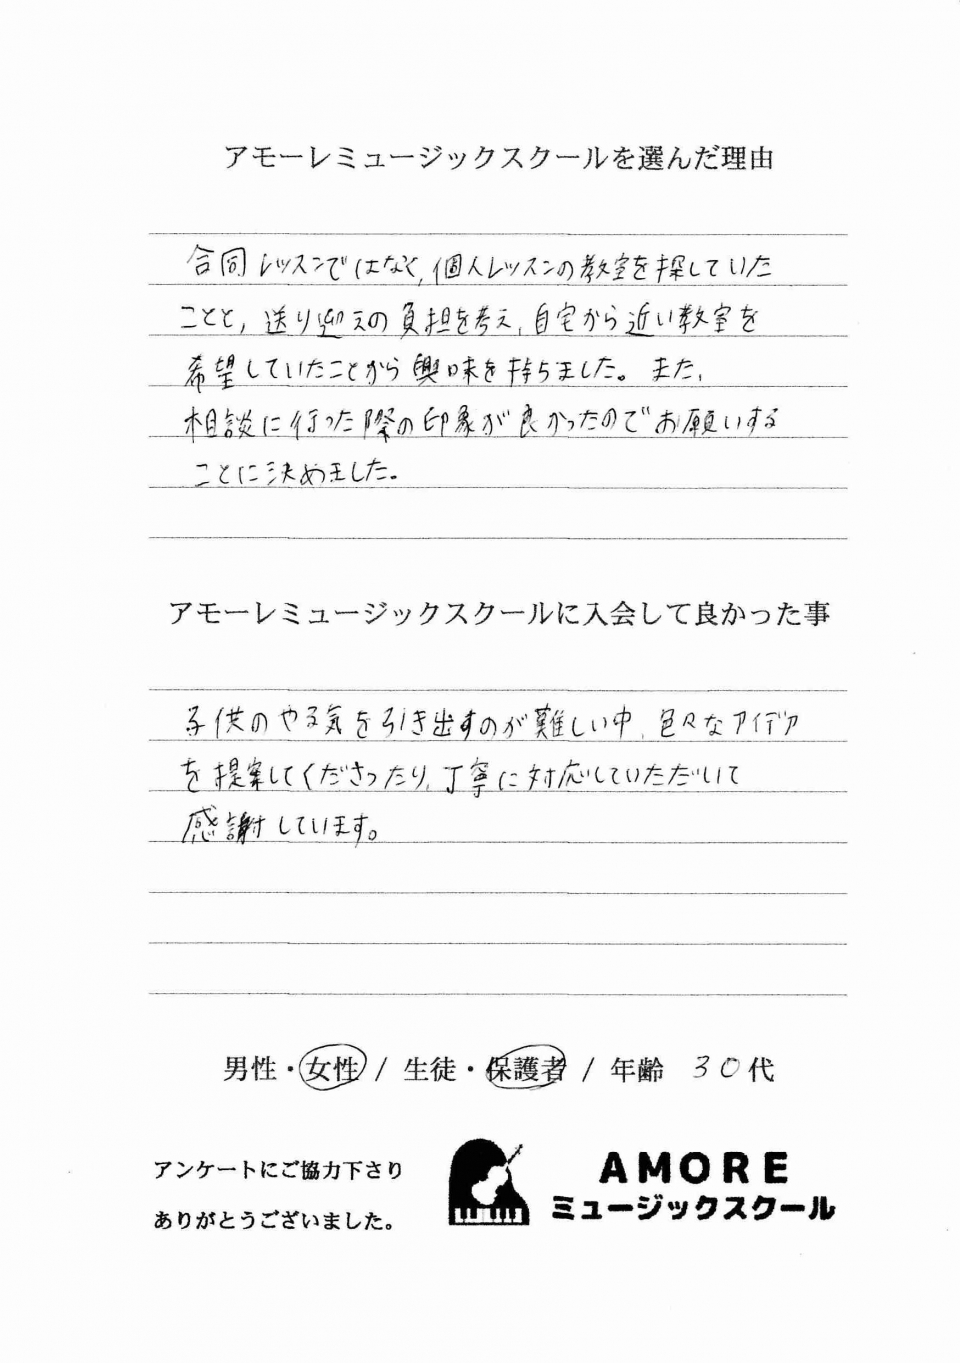 アモーレミュージックスクールを選んだ理由
合同レッスンではなく、個人レッスンの教室を探していた
ことと、送り迎えの負担を考え、自宅から近い教室を
希望していたことから興味を持ちました。また、
相談に行った際の印象が良かったのでお願いする
ことに決めました。
アモーレミュージックスクールに入会して良かった事
子供のやる気を引き出すのが難しい中、色々なアイデア
を提案してくださったり、丁寧に対応していただいて
感謝しています。
男性・女性 / 生徒・保護者 / 年齢 30代
アンケートにご協力下さり
ありがとうございました。
AMORE
ミュージックスクール